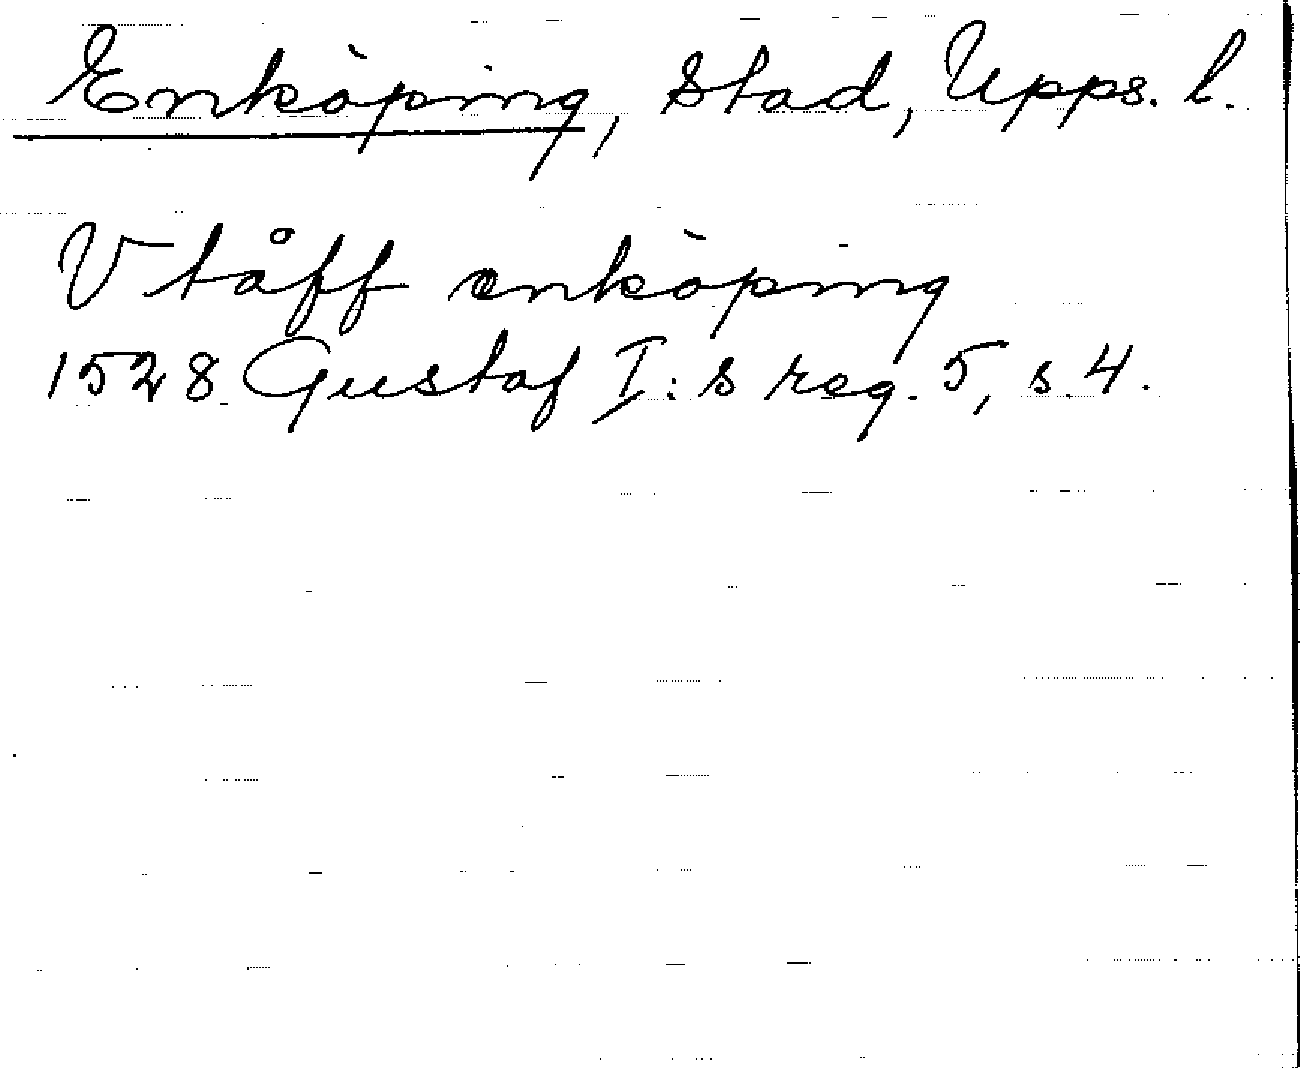 Enköping, Stad, Upps. l.
V tåff enköping
1528 Gustaf I:s reg. 5, s. 4.